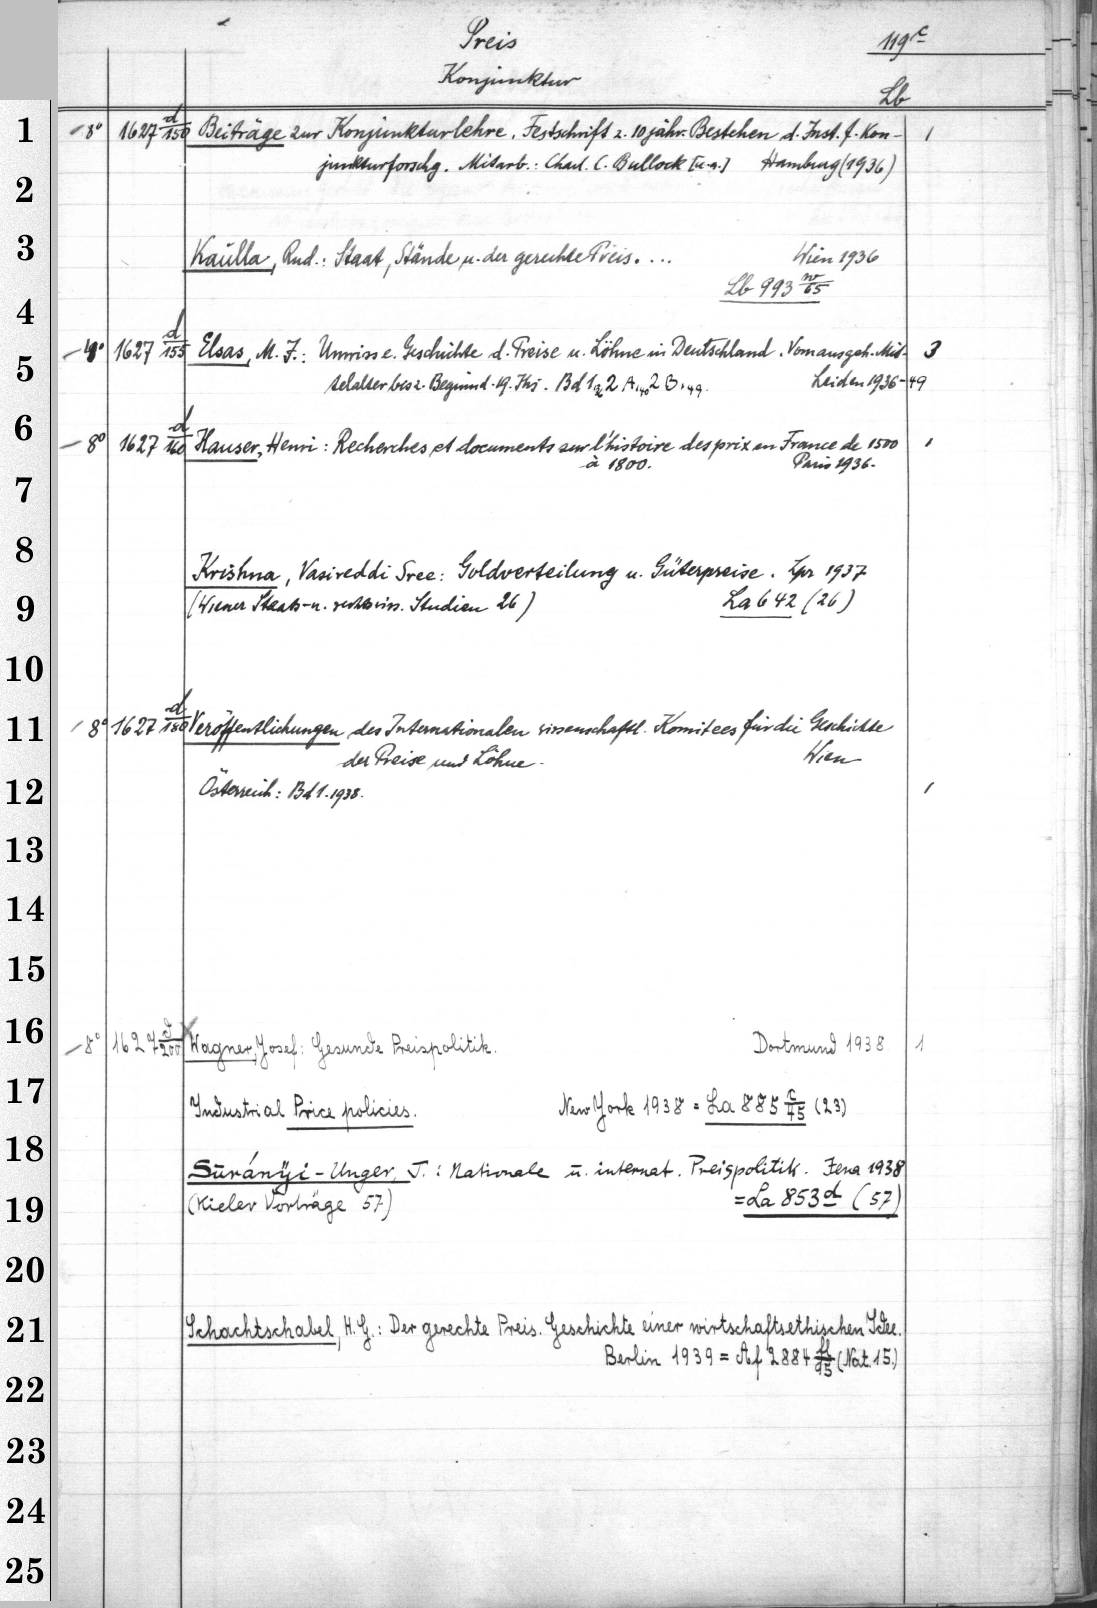 Preis 119c
Konjunktur
Lb
1 8° 1627 d/150 Beiträge zur Konjunkturlehre. Festschrift z. 10jähr. Bestehen d. Inst. f. Kon- 1
junkturforschg. Mitarb.: Charl. C. Bullock [u.a.] Hamburg (1936)
2
3 Kaulla, Rud.: Staat, Stände u. der gerechte Preis. ... Wien 1936
Lb 993 w/65
4
5 4° 1627 d/155 Elsas, M. J.: Umriss e. Geschichte d. Preise u. Löhne in Deutschland. Vom ausgeh. Mit- 3
telalter bis z. Beginn d. 19. Jhs. Bd 1. 2 A. 40 2 B. 49. Leiden 1936-49
6 8° 1627 d/160 Hauser, Henri: Recherches et documents sur l'histoire des prix en France de 1500 1
à 1800. Paris 1936.
7
8 Krishna, Vasireddi Sree: Goldverteilung u. Güterpreise. Lpz 1937
9 (Wiener Staats- u. rechtswiss. Studien 26) La 642 (26)
10
11 8° 1627 d/180 Veröffentlichungen des Internationalen wissenschaftl. Komitees für die Geschichte
der Preise und Löhne. Wien
12 Österreich: Bd 1. 1938. 1
13
14
15
16 8° 1627 d/200 Wagner, Josef: Gesunde Preispolitik. Dortmund 1938 1
17 Industrial Price policies. New York 1938 = La 885 c/75 (23)
18 Surányi-Unger, T.: Nationale u. internat. Preispolitik. Jena 1938
19 (Kieler Vorträge 57) = La 853d (57)
20
21 Schachtschabel, H. G.: Der gerechte Preis. Geschichte einer wirtschaftsethischen Idee.
Berlin 1939 = Af 2884 /95 (Nat. 15.)
22
23
24
25